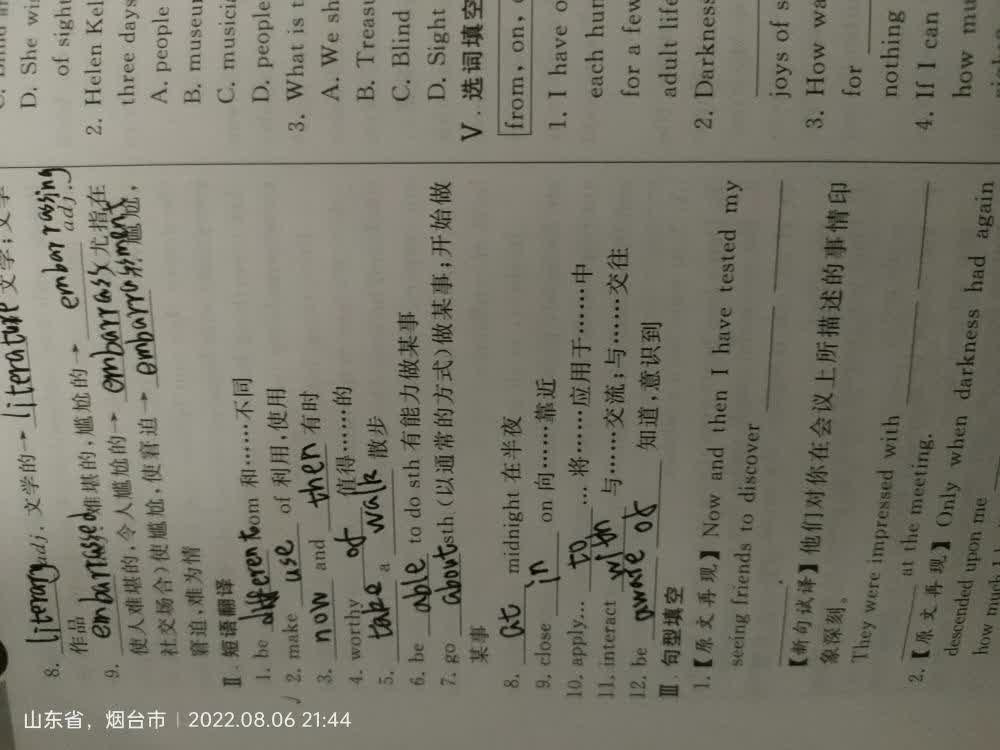 8. literary adj. 文学的→ literature 文学;文学
作品
9. embarrassed 难堪的,尴尬的→ embarrassing adj.
使人难堪的,令人尴尬的→ embarrass 尤指在
社交场合)使尴尬,使窘迫→ embarrassment 尴尬,
窘迫,难为情
Ⅱ. 短语翻译
1. be different om 和……不同
2. make use of 利用,使用
3. now and then 有时
4. worthy of 值得……的
5. take a walk 散步
6. be able to do sth 有能力做某事
7. go about sth (以通常的方式)做某事;开始做
某事
8. at midnight 在半夜
9. close in on 向……靠近
10. apply... to ... 将……应用于……中
11. interact with 与……交流;与……交往
12. be aware of 知道,意识到
Ⅲ. 句型填空
1.【原文再现】Now and then I have tested my
seeing friends to discover
.
【新句试译】他们对你在会议上所描述的事情印
象深刻。
They were impressed with
at the meeting.
2.【原文再现】Only when darkness had again
descended upon me
how much
D. She
of sight
2. Helen Kel
three days
A. people
B. museu
C. musicia
D. people
3. What is t
A. We sh
B. Treasu
C. Blind
D. Sight
Ⅴ. 选词填空
from, on,
1. I have o
each hun
for a few
adult life
2. Darkness
joys of s
3. How wa
for
nothing
4. If I can
how mu
山东省,烟台市 | 2022.08.06 21:44